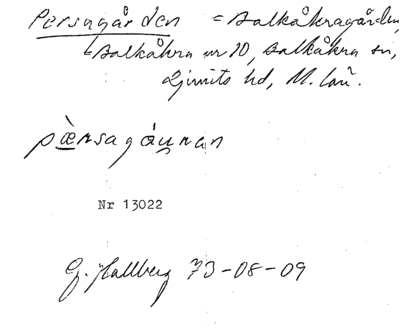 Persagården = Balkåkragården,
= Balkåkra nr 10, Balkåkra sn,
Ljunits hd, M. län.
pæ̀rsagáu̯nan
Nr 13022
G. Hallberg 73-08-09